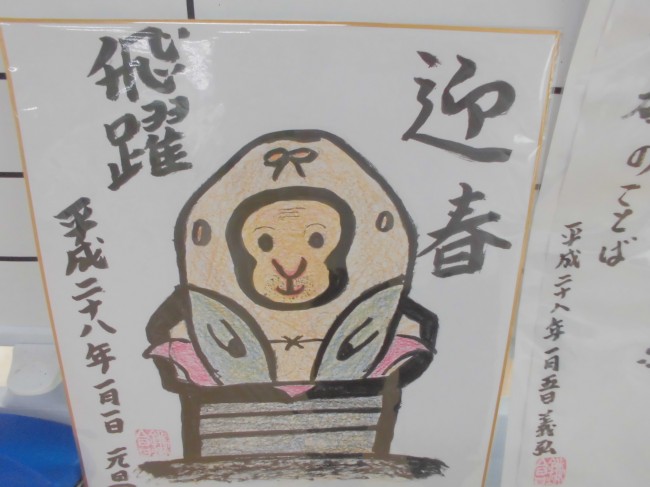 迎春
飛躍
平成二十八年一月一日 元旦
のことば
平成二十八年一月五日 義弘